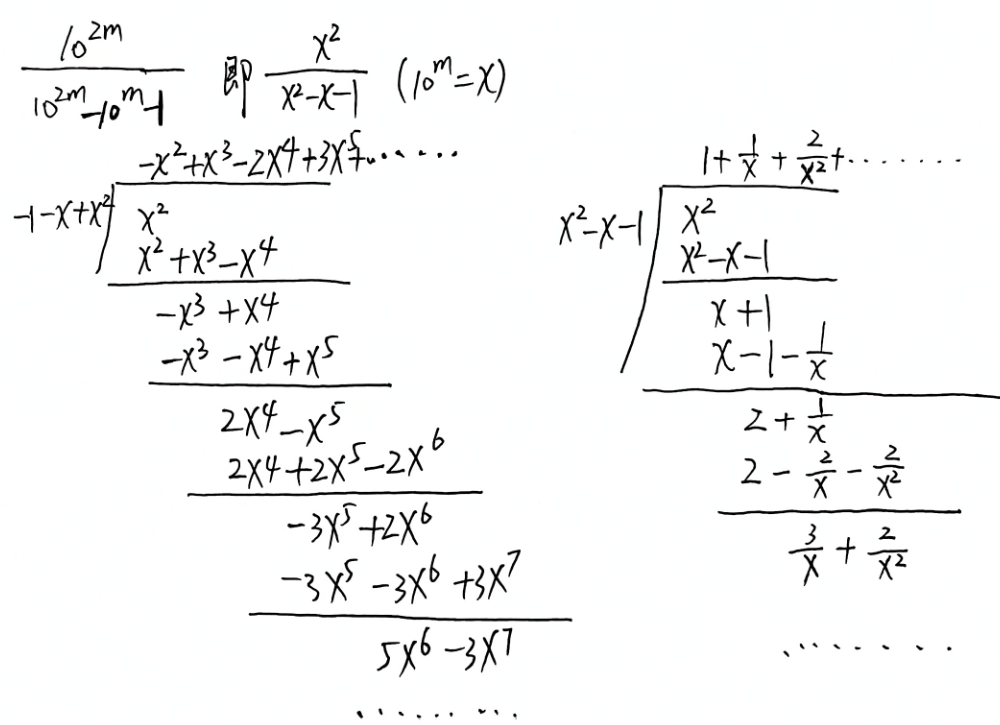 10^{2m} / (10^{2m}-10^m-1) 即 x² / (x²-x-1) (10^m=x)
-x²+x³-2x⁴+3x⁵+······
-1-x+x² x²
x²+x³-x⁴
-x³+x⁴
-x³-x⁴+x⁵
2x⁴-x⁵
2x⁴+2x⁵-2x⁶
-3x⁵+2x⁶
-3x⁵-3x⁶+3x⁷
5x⁶-3x⁷
········
1+1/x+2/x²+·······
x²-x-1 x²
x²-x-1
x+1
x-1-1/x
2+1/x
2-2/x-2/x²
3/x+2/x²
········